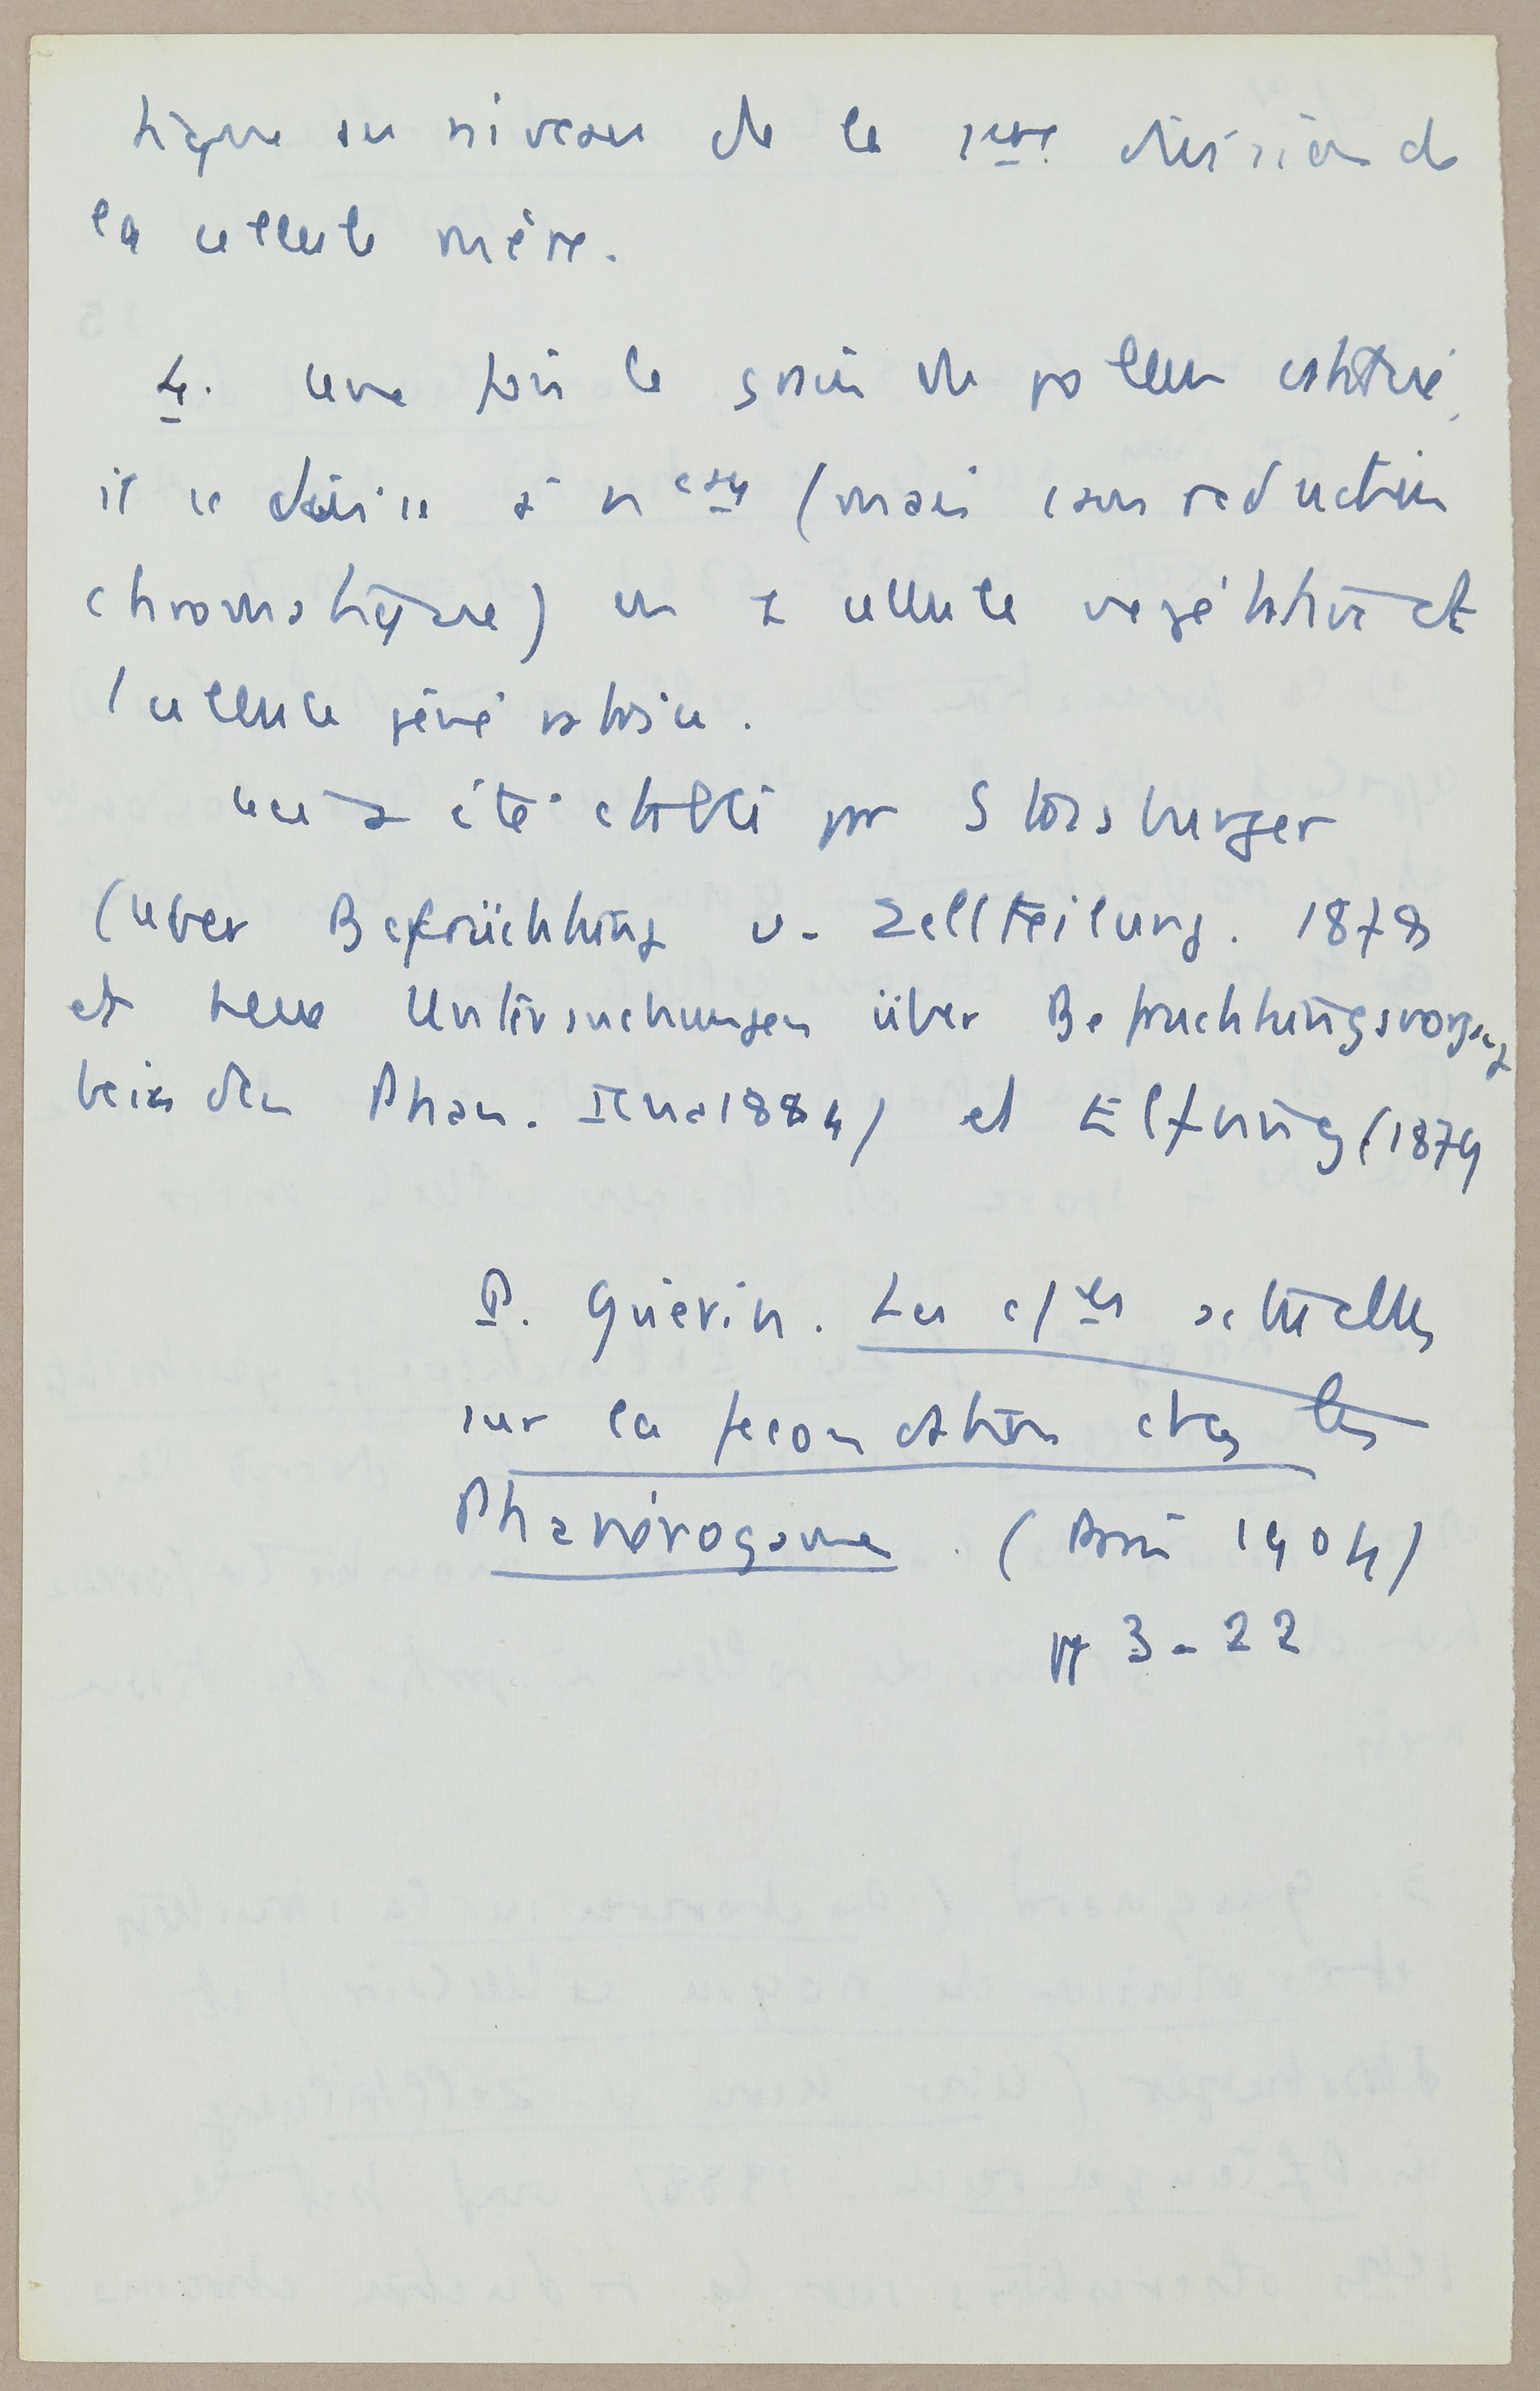 tique au niveau de la 1ere division de
la cellule mère.
4. une fois le grain de pollen constitué,
il se divise à nveau (mais sans reduction
chromatique) en 1 cellule végétative et
1 cellule génératrice.
ceci a été établi par Strasburger
(über Befrüchtung u. Zellteilung. 1878
et neue Untersuchungen über Befruchtungsvorgang
bei den Phan. Iena 1884) et Elfving (1879
P. Guérin. Les c/ces actuelles
sur la fecondation chez les
Phanérogames. (Paris 1904)
pp 3-22